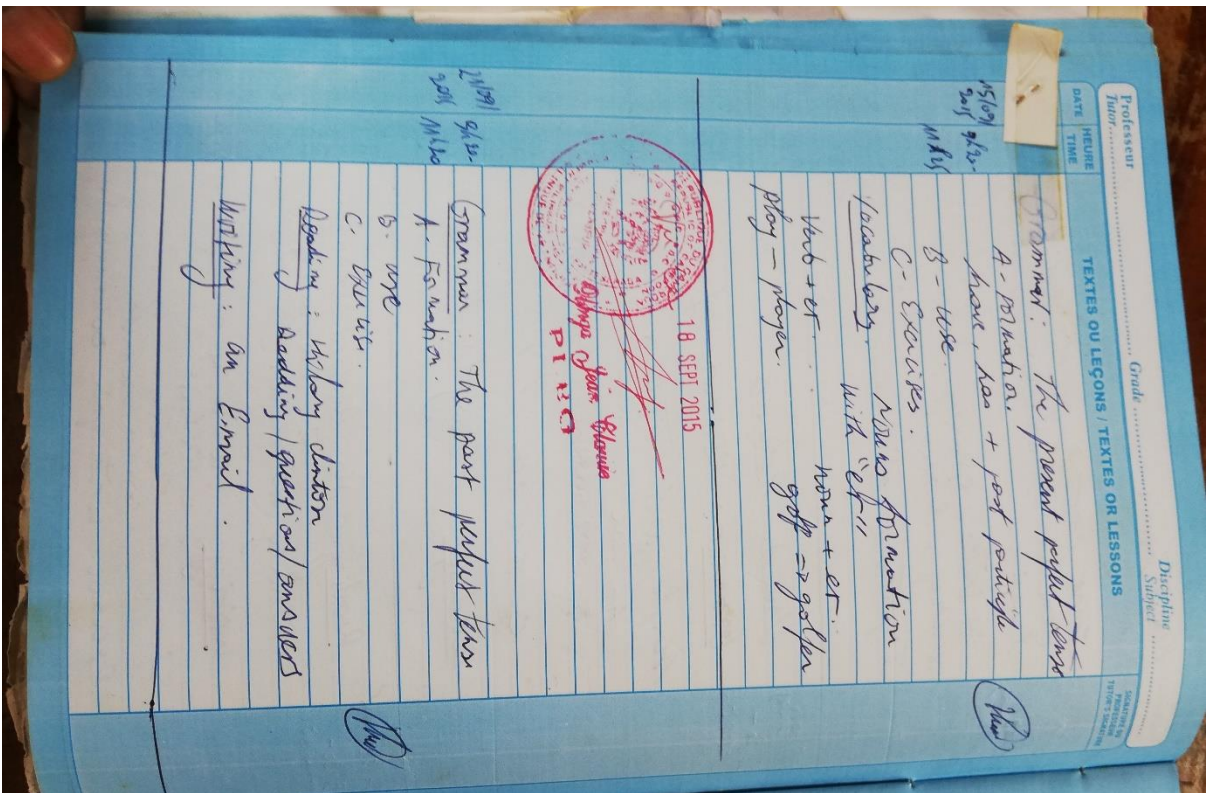 Professeur Grade Discipline
Tutor Subject
DATE HEURE TEXTES OU LEÇONS / TEXTES OR LESSONS SIGNATURE DU PROFESSEUR
TIME TUTOR'S SIGNATURE
Grammar: The present perfect tense
15/09/ 9h20- A- Formation.
2015 have, has + past participle
11h25 B- use
C- Exercises.
Vocabulary. Nouns formation
with "er"
Verb + er noun + er.
play - player. golf → golfer
18 SEPT 2015
Jean
PLEG
21/09/ 9h20- Grammar : The past perfect tense
2015 11h20 A- Formation.
B- use
C- Exercise.
Reading : Hilary clinton
Reading / questions / answers
Writing : an Email.